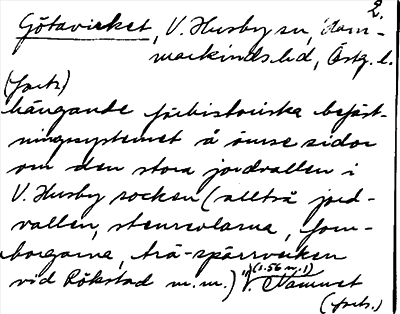 2.
Götavirket, V. Husby sn, Ham-
markinds hd, Östg. l.
(forts)
hängande förhistoriska befäst-
ningssystemet å ömse sidor
om den stora jordvallen i
V. Husby socken (alltså jord-
vallen, stensolarna, forn-
borgarna, trä-spärrverken
vid Rökstad m.m.)" (s. 56 n. 1)
V. Namnet
(forts.)